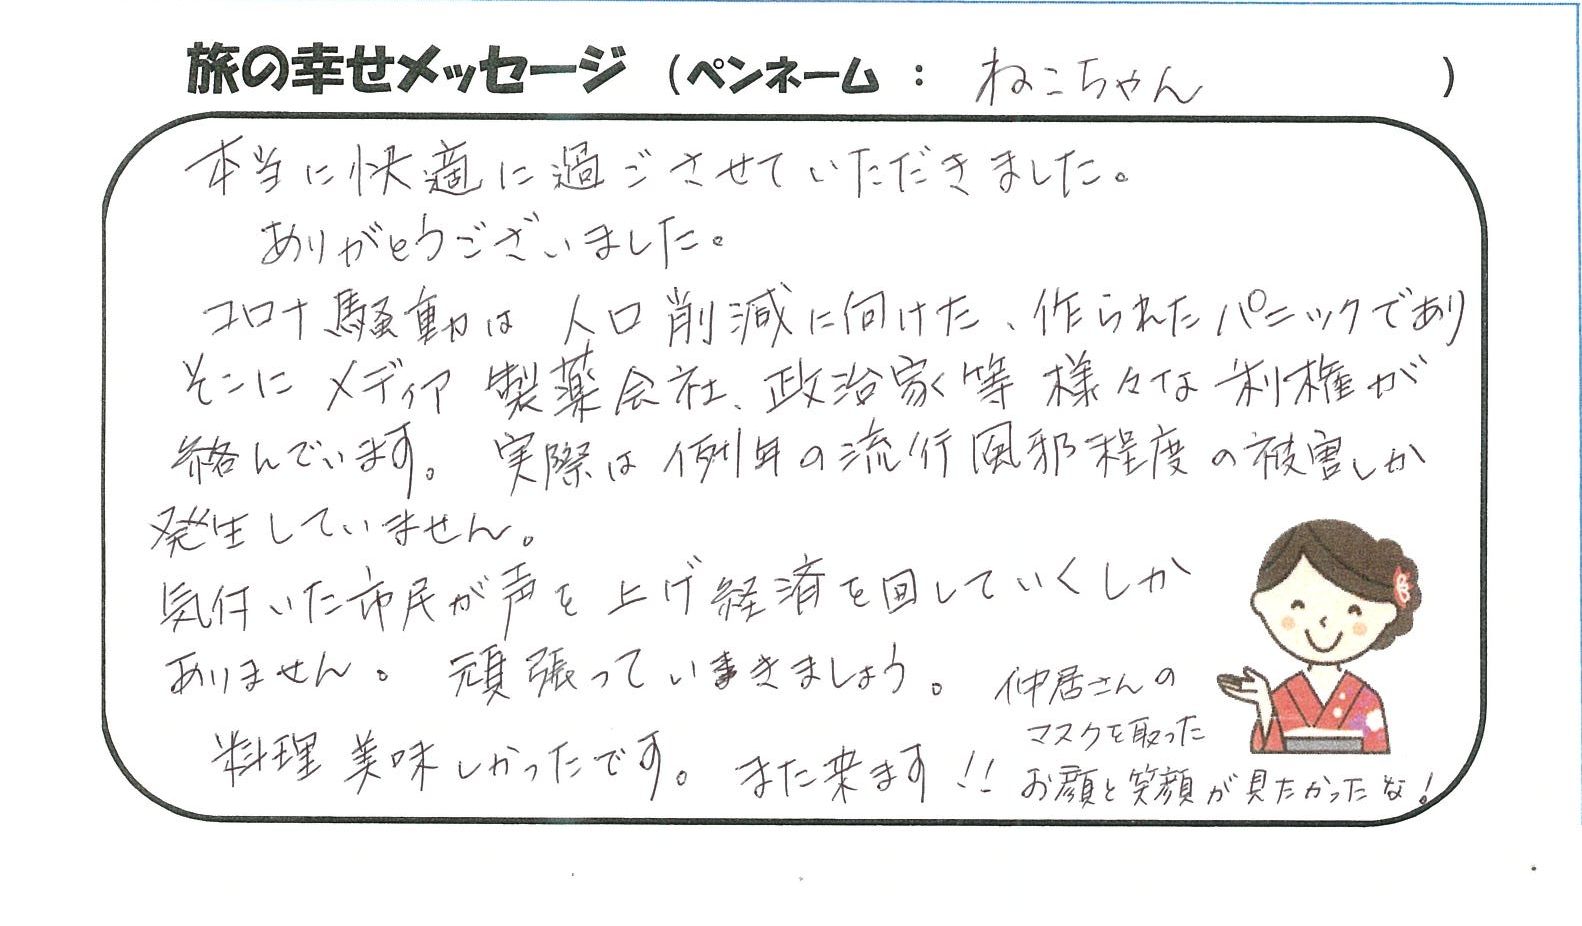 旅の幸せメッセージ (ペンネーム : ねこちゃん )
本当に快適に過ごさせていただきました。
ありがとうございました。
コロナ騒動は人口削減に向けた、作られたパニックであり
そこにメディア 製薬会社、政治家等 様々な利権が
絡んでいます。 実際は例年の流行風邪程度の被害しか
発生していません。
気付いた市民が声を上げ経済を回していくしか
ありません。 頑張っていきましょう。
料理美味しかったです。 また来ます!!
仲居さんの
マスクを取った
お顔と笑顔が見たかったな!